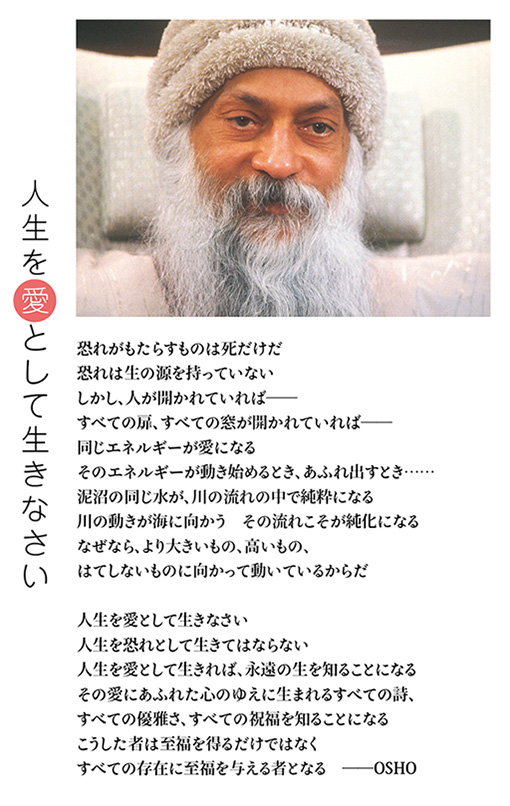 人生を愛として生きなさい
恐れがもたらすものは死だけだ
恐れは生の源を持っていない
しかし、人が開かれていれば──
すべての扉、すべての窓が開かれていれば──
同じエネルギーが愛になる
そのエネルギーが動き始めるとき、あふれ出すとき……
泥沼の同じ水が、川の流れの中で純粋になる
川の動きが海に向かう　その流れこそが純化になる
なぜなら、より大きいもの、高いもの、
はてしないものに向かって動いているからだ
人生を愛として生きなさい
人生を恐れとして生きてはならない
人生を愛として生きれば、永遠の生を知ることになる
その愛にあふれた心のゆえに生まれるすべての詩、
すべての優雅さ、すべての祝福を知ることになる
こうした者は至福を得るだけではなく
すべての存在に至福を与える者となる　──OSHO